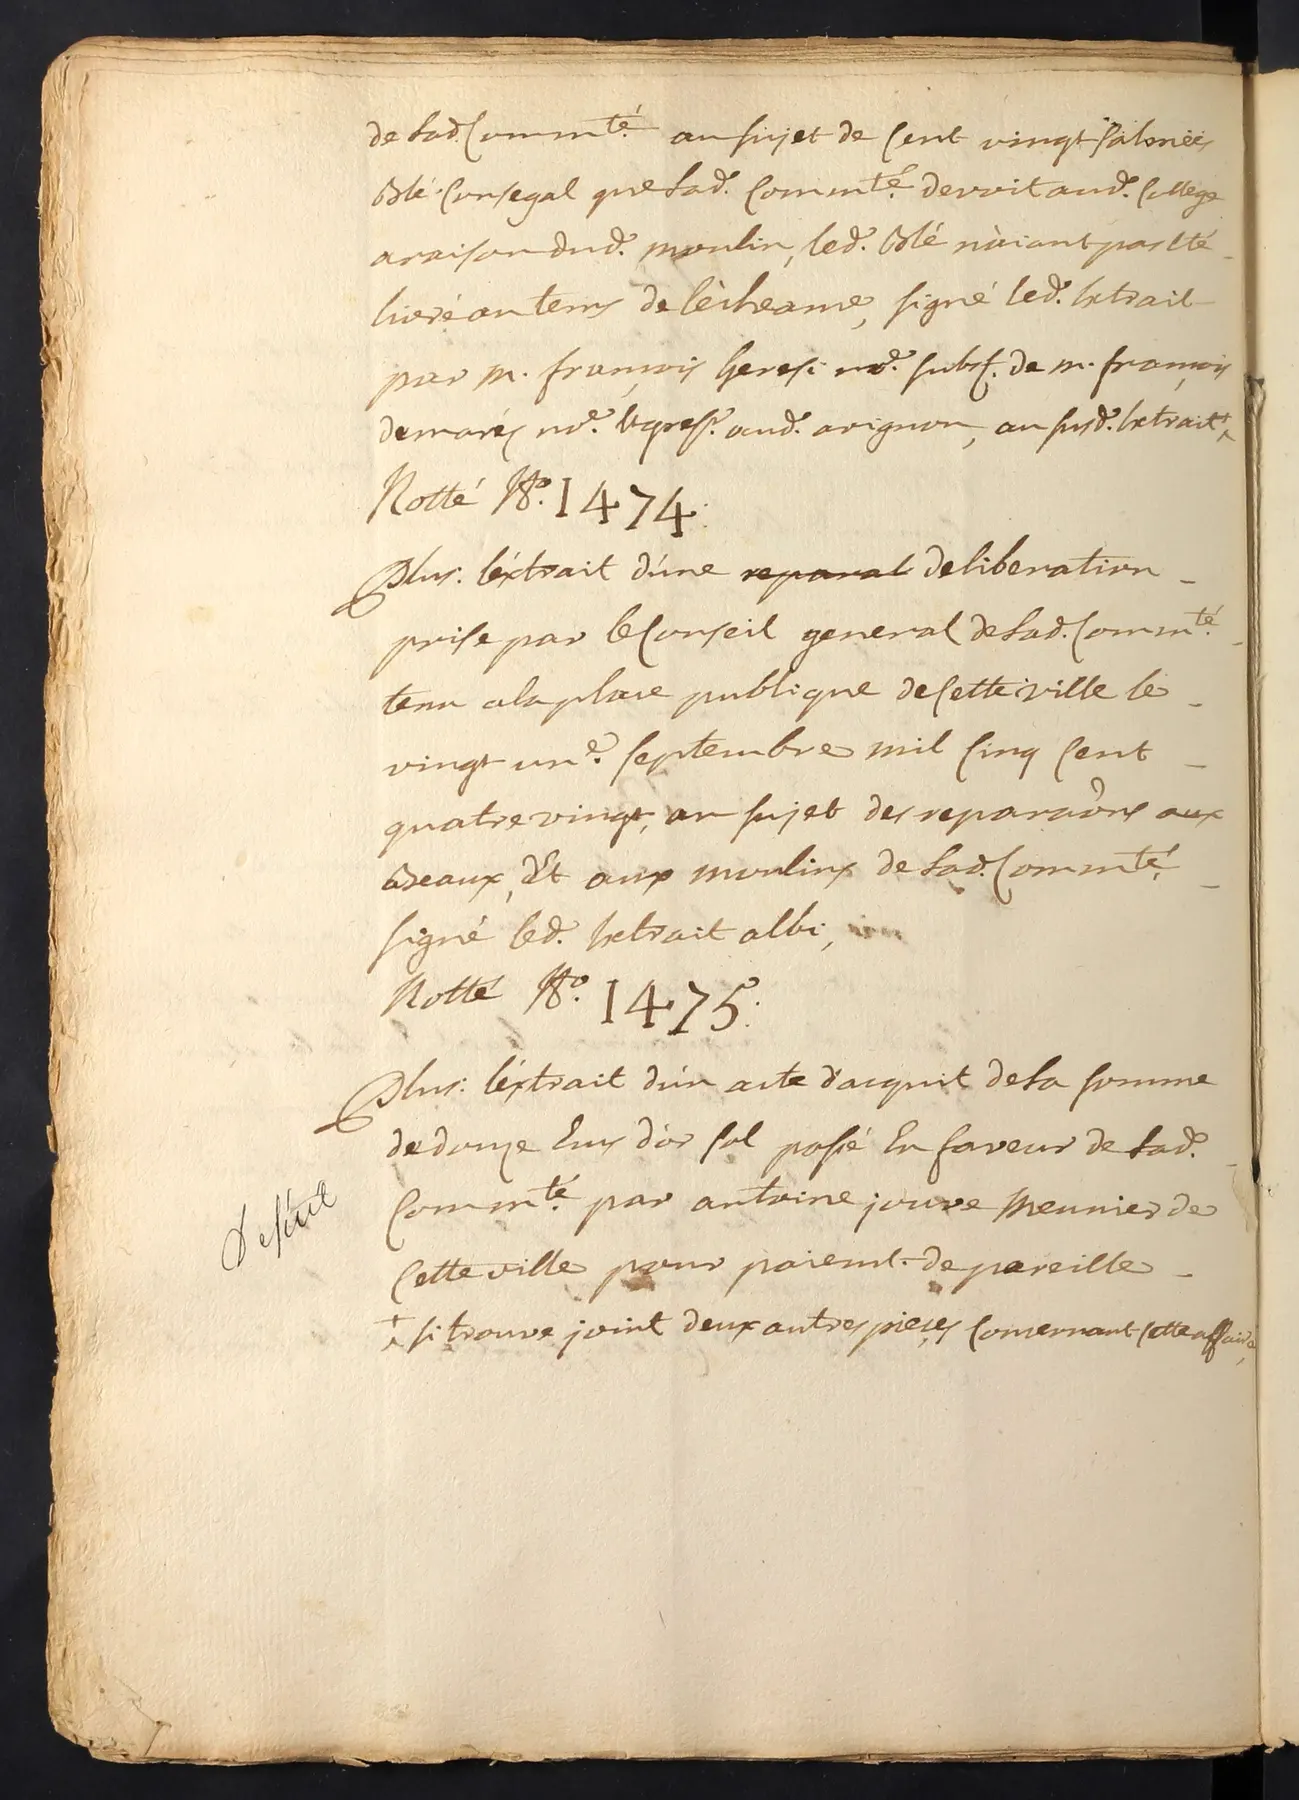 de lad. Commté. au sujet de Cent vingt salmées
Blé Consegal que lad. Commté. devoit aud. College
a raison dud. moulin, led. Blé n'aiant pas Eté
livré au tems de l'echeance, signé led. Extrait
par m. françois Geresi nore. subst. de m. françois
demarés nore. Et greff. aud. avignon, au susd. Extrait ⁺
Notté No. 1474.
Plus: l'extrait d'une reparat deliberation
prise par le Conseil general de lad. Commté.
tenu a la place publique de Cette ville le
vingt une. septembre mil Cinq Cent
quatre vingt, au sujet des reparaôns aux
Beaux, Et aux moulins de lad. Commté.
signé led. Extrait albi,
Notté No. 1475.
Plus: l'extrait d'un acte d'acquit de la somme
de douze Ecus d'or sol passé En faveur de lad.
Commté. par antoine jouve Meunier de
Cette ville pour paiemt. de pareille
⁺ si trouve joint deux autres pieces Concernant Cette affaire,